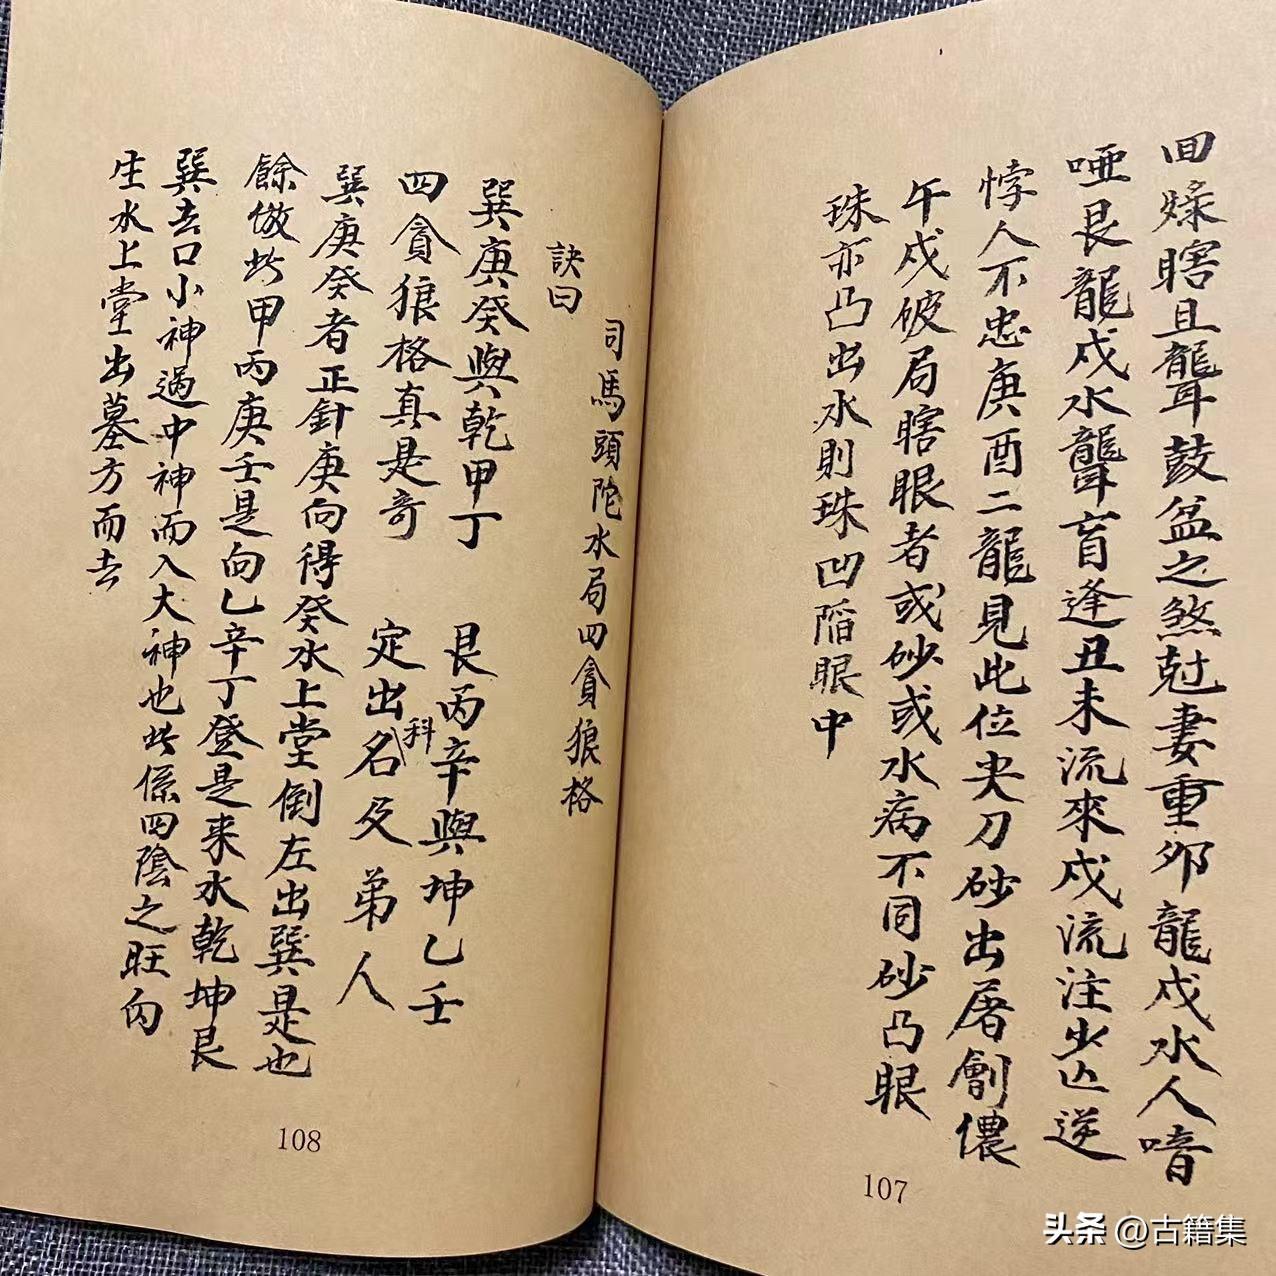 回祿瞎且聾鼓盆之煞尅妻重夘龍戍水人喑
啞艮龍戍水聾盲逢丑未流來戍流注少亾逆
悖人不忠庚酉二龍見此位尖刀砂出屠劊儂
午戍破局瞎眼者或砂或水病不同砂凸眼
珠亦凸出水則珠凹陷眼中
107
司馬頭陀水局四貪狼格
訣曰
巽庚癸與乾甲丁 艮丙辛與坤乙壬
四貪狼格真是奇 定出名科及弟人
巽庚癸者正針庚向得癸水上堂倒左出巽是也
餘倣此甲丙庚壬是向乙辛丁登是来水乾坤艮
巽去口小神過中神而入大神也此係四陰之旺向
生水上堂出墓方而去
108
头条 @古籍集